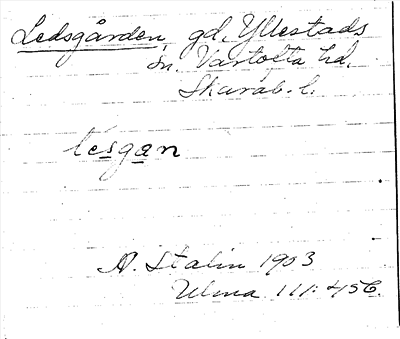 Ledsgården, gd, Yllestads
sn. Vartofta hd.
Skarab. l.
lesgan
A. Stalin 1903
Ulma 111: 456.